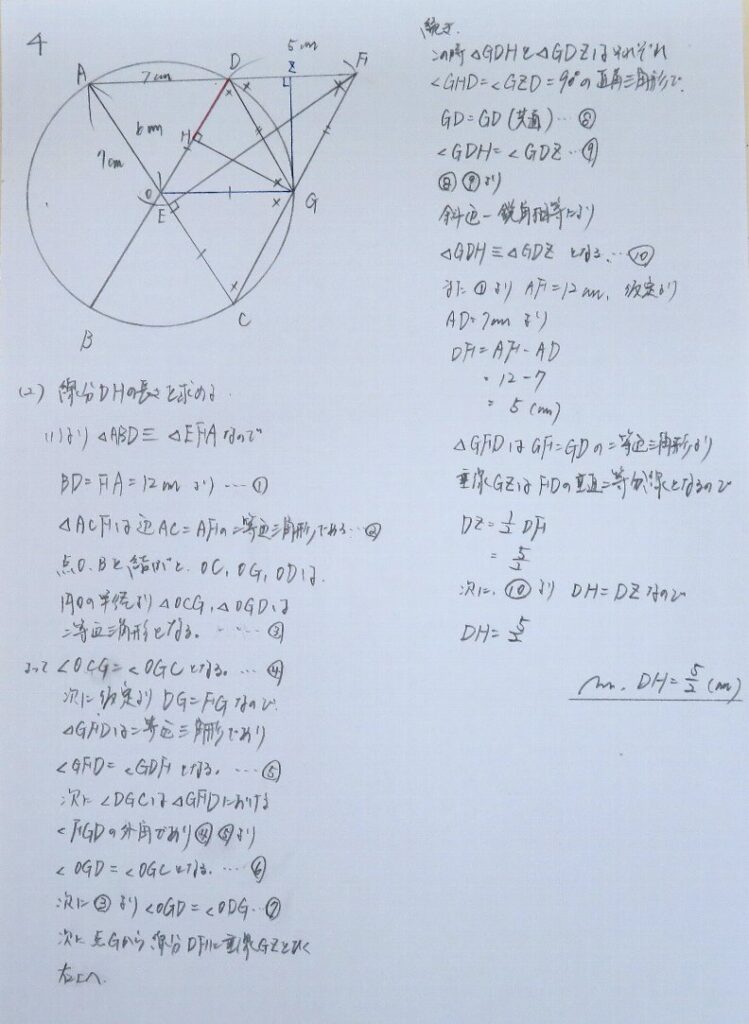 4
A
7cm
D
5cm
Z
F
6cm
H
7cm
O
E
G
B
C
(2) 線分DHの長さを求める.
(1)より △ABD≡ △EFAなので
BD=FA=12cmより ……①
△ACFは辺AC=AFの二等辺三角形である…②
点O.Bを結ぶと. OC, OG, ODは.
円Oの半径より △OCG, △OGDは
二等辺三角形となる. ……③
よって ∠OCG=∠OGCとなる. …④
次に仮定より DG=FGなので.
△GFDは二等辺三角形であり
∠GFD=∠GDFとなる. …⑤
次に ∠DGCは △GFDにおける
∠FGDの外角であり④⑤より
∠OGD=∠OGCとなる. …⑥
次に③より ∠OGD=∠ODG…⑦
次に 点Gから 線分DFに垂線GZをひく
右上へ.
続き.
この時 △GDHと△GDZはそれぞれ
∠GHD=∠GZD=90°の直角三角形で.
GD=GD(共通)…⑧
∠GDH=∠GDZ…⑨
⑧⑨より
斜辺一鋭角相等により
△GDH≡△GDZ となる.…⑩
また①より AF=12cm, 仮定より
AD=7cmより
DF=AF-AD
=12-7
=5(cm)
△GFDはGF=GDの二等辺三角形より
垂線GZはFDの垂直二等分線となるので
DZ=1/2 DF
=5/2
次に, ⑩より DH=DZなので
DH=5/2
DH=5/2(cm)